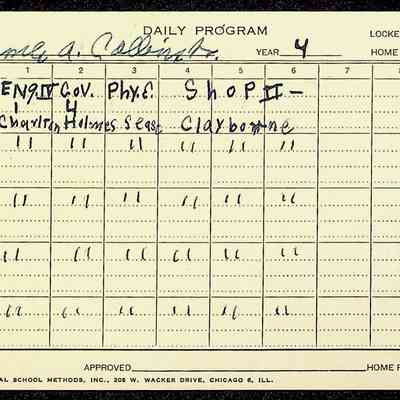 DAILY PROGRAM
LOCKE
A. Collins Jr.
YEAR 4
HOME
1 2 3 4 5 6 7 8
ENG IV Gov. Phy. E. Shop II -
1 4
Charlton Holmes Sease Clayborne
" " " " " "
" " " " " "
" " " " " "
" " " " " "
APPROVED HOME R
AL SCHOOL METHODS, INC., 205 W. WACKER DRIVE, CHICAGO 6, ILL.